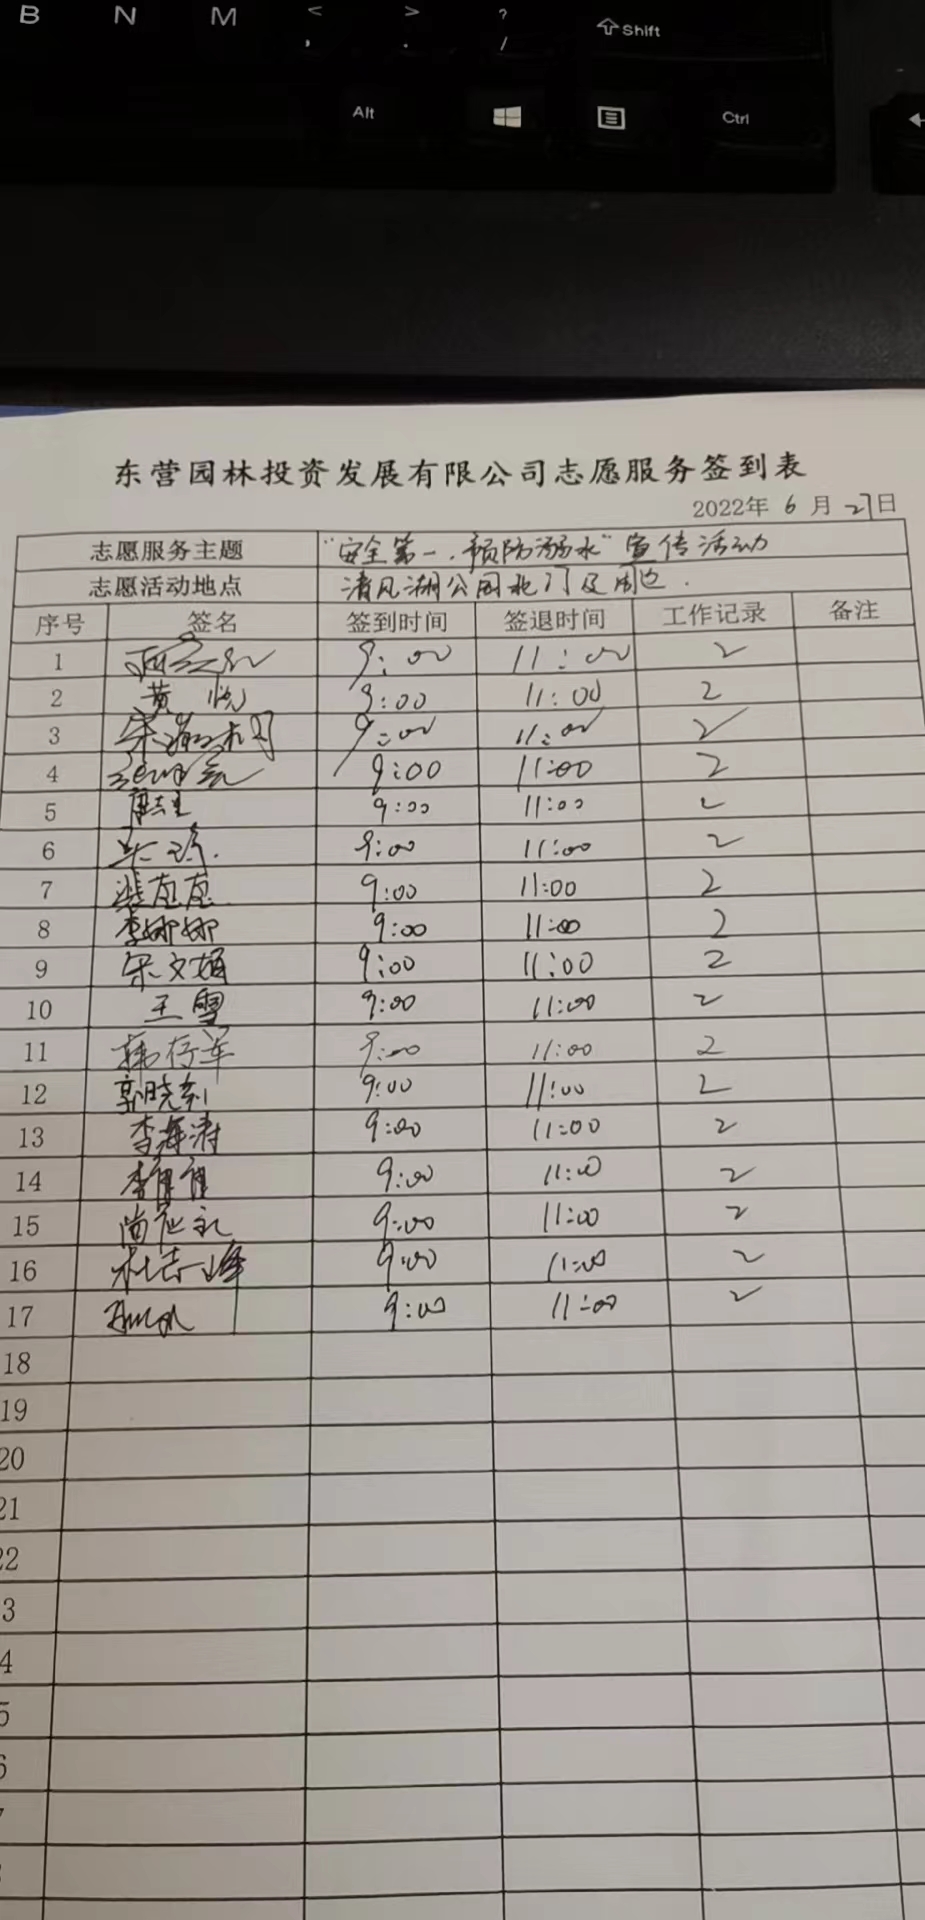 B N M < , > . ? / Shift
Alt Ctrl
东营园林投资发展有限公司志愿服务签到表
2022年 6 月 27日
志愿服务主题 "安全第一,预防溺水"宣传活动
志愿活动地点 清风湖公园北门及周边.
序号 签名 签到时间 签退时间 工作记录 备注
1 9:00 11:00 2
2 黄悦 9:00 11:00 2
3 9:00 11:00 2
4 9:00 11:00 2
5 9:00 11:00 2
6 9:00 11:00 2
7 9:00 11:00 2
8 李娜娜 9:00 11:00 2
9 宋文娟 9:00 11:00 2
10 王雪 9:00 11:00 2
11 韩存军 9:00 11:00 2
12 郭晓利 9:00 11:00 2
13 李海涛 9:00 11:00 2
14 9:00 11:00 2
15 9:00 11:00 2
16 杜志峰 9:00 11:00 2
17 9:00 11:00 2
18
19
20
21
22
3
4
5
6